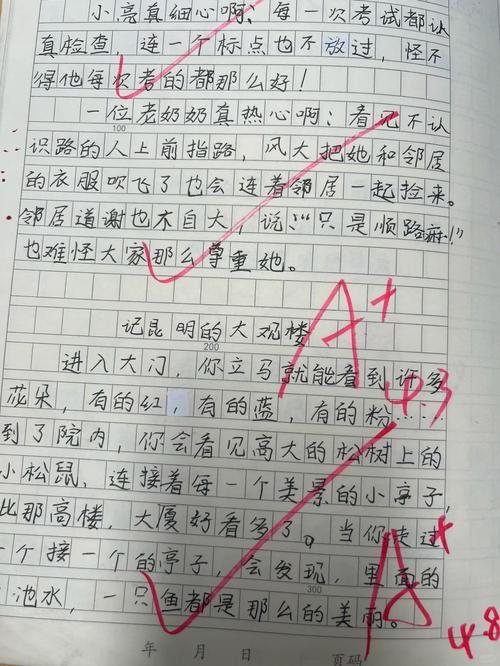 小亮真细心啊：每一次考试都认
真检查，连一个标点也不放过，怪不
得他每次考的都那么好！
一位老奶奶真热心啊：看见不认
100
识路的人上前指路，风大把她和邻居
的衣服吹飞了也会连着邻居一起捡来。
邻居道谢也不自大，说：“只是顺路嘛！”
也难怪大家那么尊重她。
A+
记昆明的大观楼
200
进入大门，你立马就能看到许多
4.3
花朵，有的红，有的蓝，有的粉……
到了院内，你会看见高大的松树上的
小松鼠，连接着每一个美景的小亭子，
比那高楼，大厦好看多了。当你走过
一个接一个的亭子，会发现，里面的
300
池水，一只鱼都是那么的美丽。
A+
4.8
年 月 日
页码